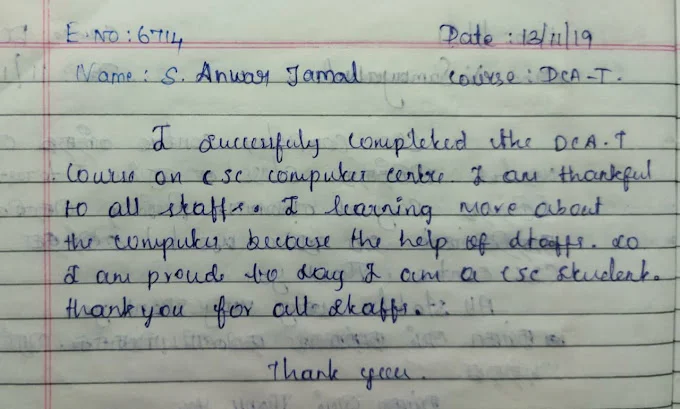 E.No : 6714 Date : 13/11/19
Name : S. Anwar Jamal Course : DCA-T.
I successfuly completed the DCA.T
Course on csc computer centre. I am thankful
to all staffs. I learning more about
the computer because the help of staffs. so
I am proude to say I am a csc student.
thank you for all staffs.
Thank you.